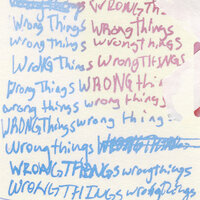 WRONGTh.
Wrong Things Wrongthings
Wrong things wrongthings
WroNG ThiNGs WrongTHINGS
Wrong Things WRONGthi
wrong things wrong things
WRONGThings wrong thing
Wrong things WRONGTHING
WRONGTHINGS wrongthings
WRONGTHINGS wrongthings